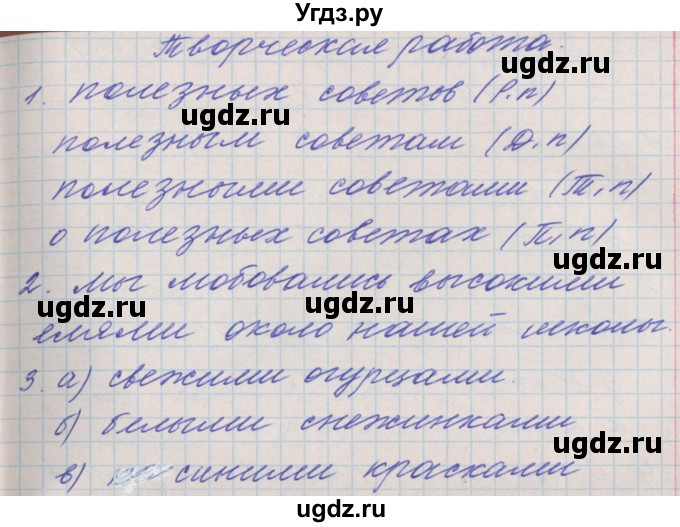 Угдз.ру
Творческая работа.
1. полезных советов (Р.п)
ugdz.ru ugdz.ru
полезным советам (Д.п)
ugdz.ru
полезными советами (Т.п)
ugdz.ru
о полезных советах (П.п)
2. Мы любовались высокими
ugdz.ru ugdz.ru
елями около нашей школы.
ugdz.ru
3. а) свежими огурцами.
ugdz.ru
б) белыми снежинками
ugdz.ru
в) синими красками
ugdz.ru ugdz.ru